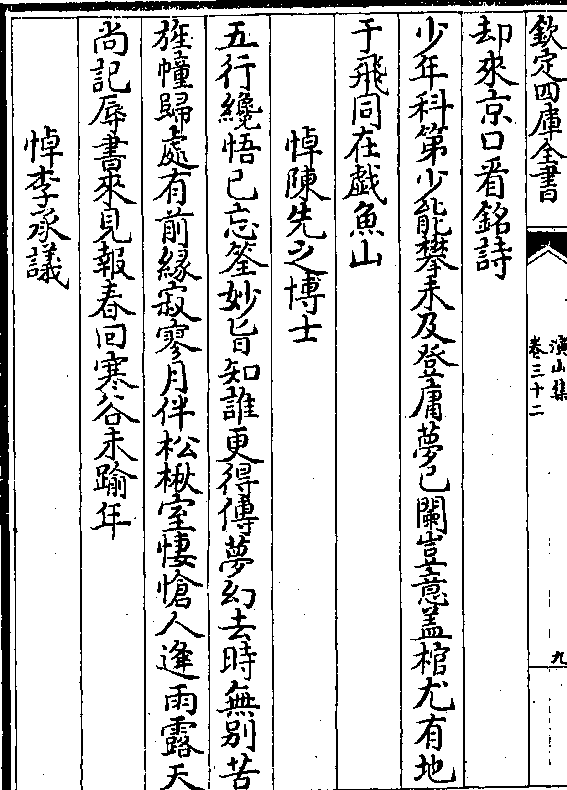 欽定四庫全書
演山集
卷三十二
九
却來京口看銘詩
少年科第少能攀未及登庸夢已闌豈意盖棺尤有地
于飛同在戯魚山
悼陳先之博士
五行纔悟已忘筌妙旨知誰更得傳夢幻去時無别苦
旌幢歸處有前緣寂寥月伴松楸室悽愴人逢雨露天
尚記辱書來見報春回寒谷未踰年
悼李承議